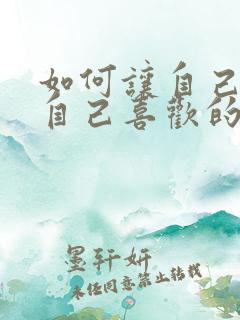 如何讓自己
自己喜歡的
墨轩妍
未经同意禁止转载